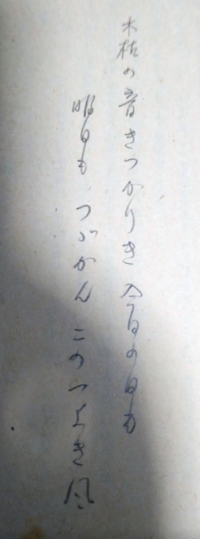 木枯の音きつかりき今日の日も
明日もつゞかんこのつよき風